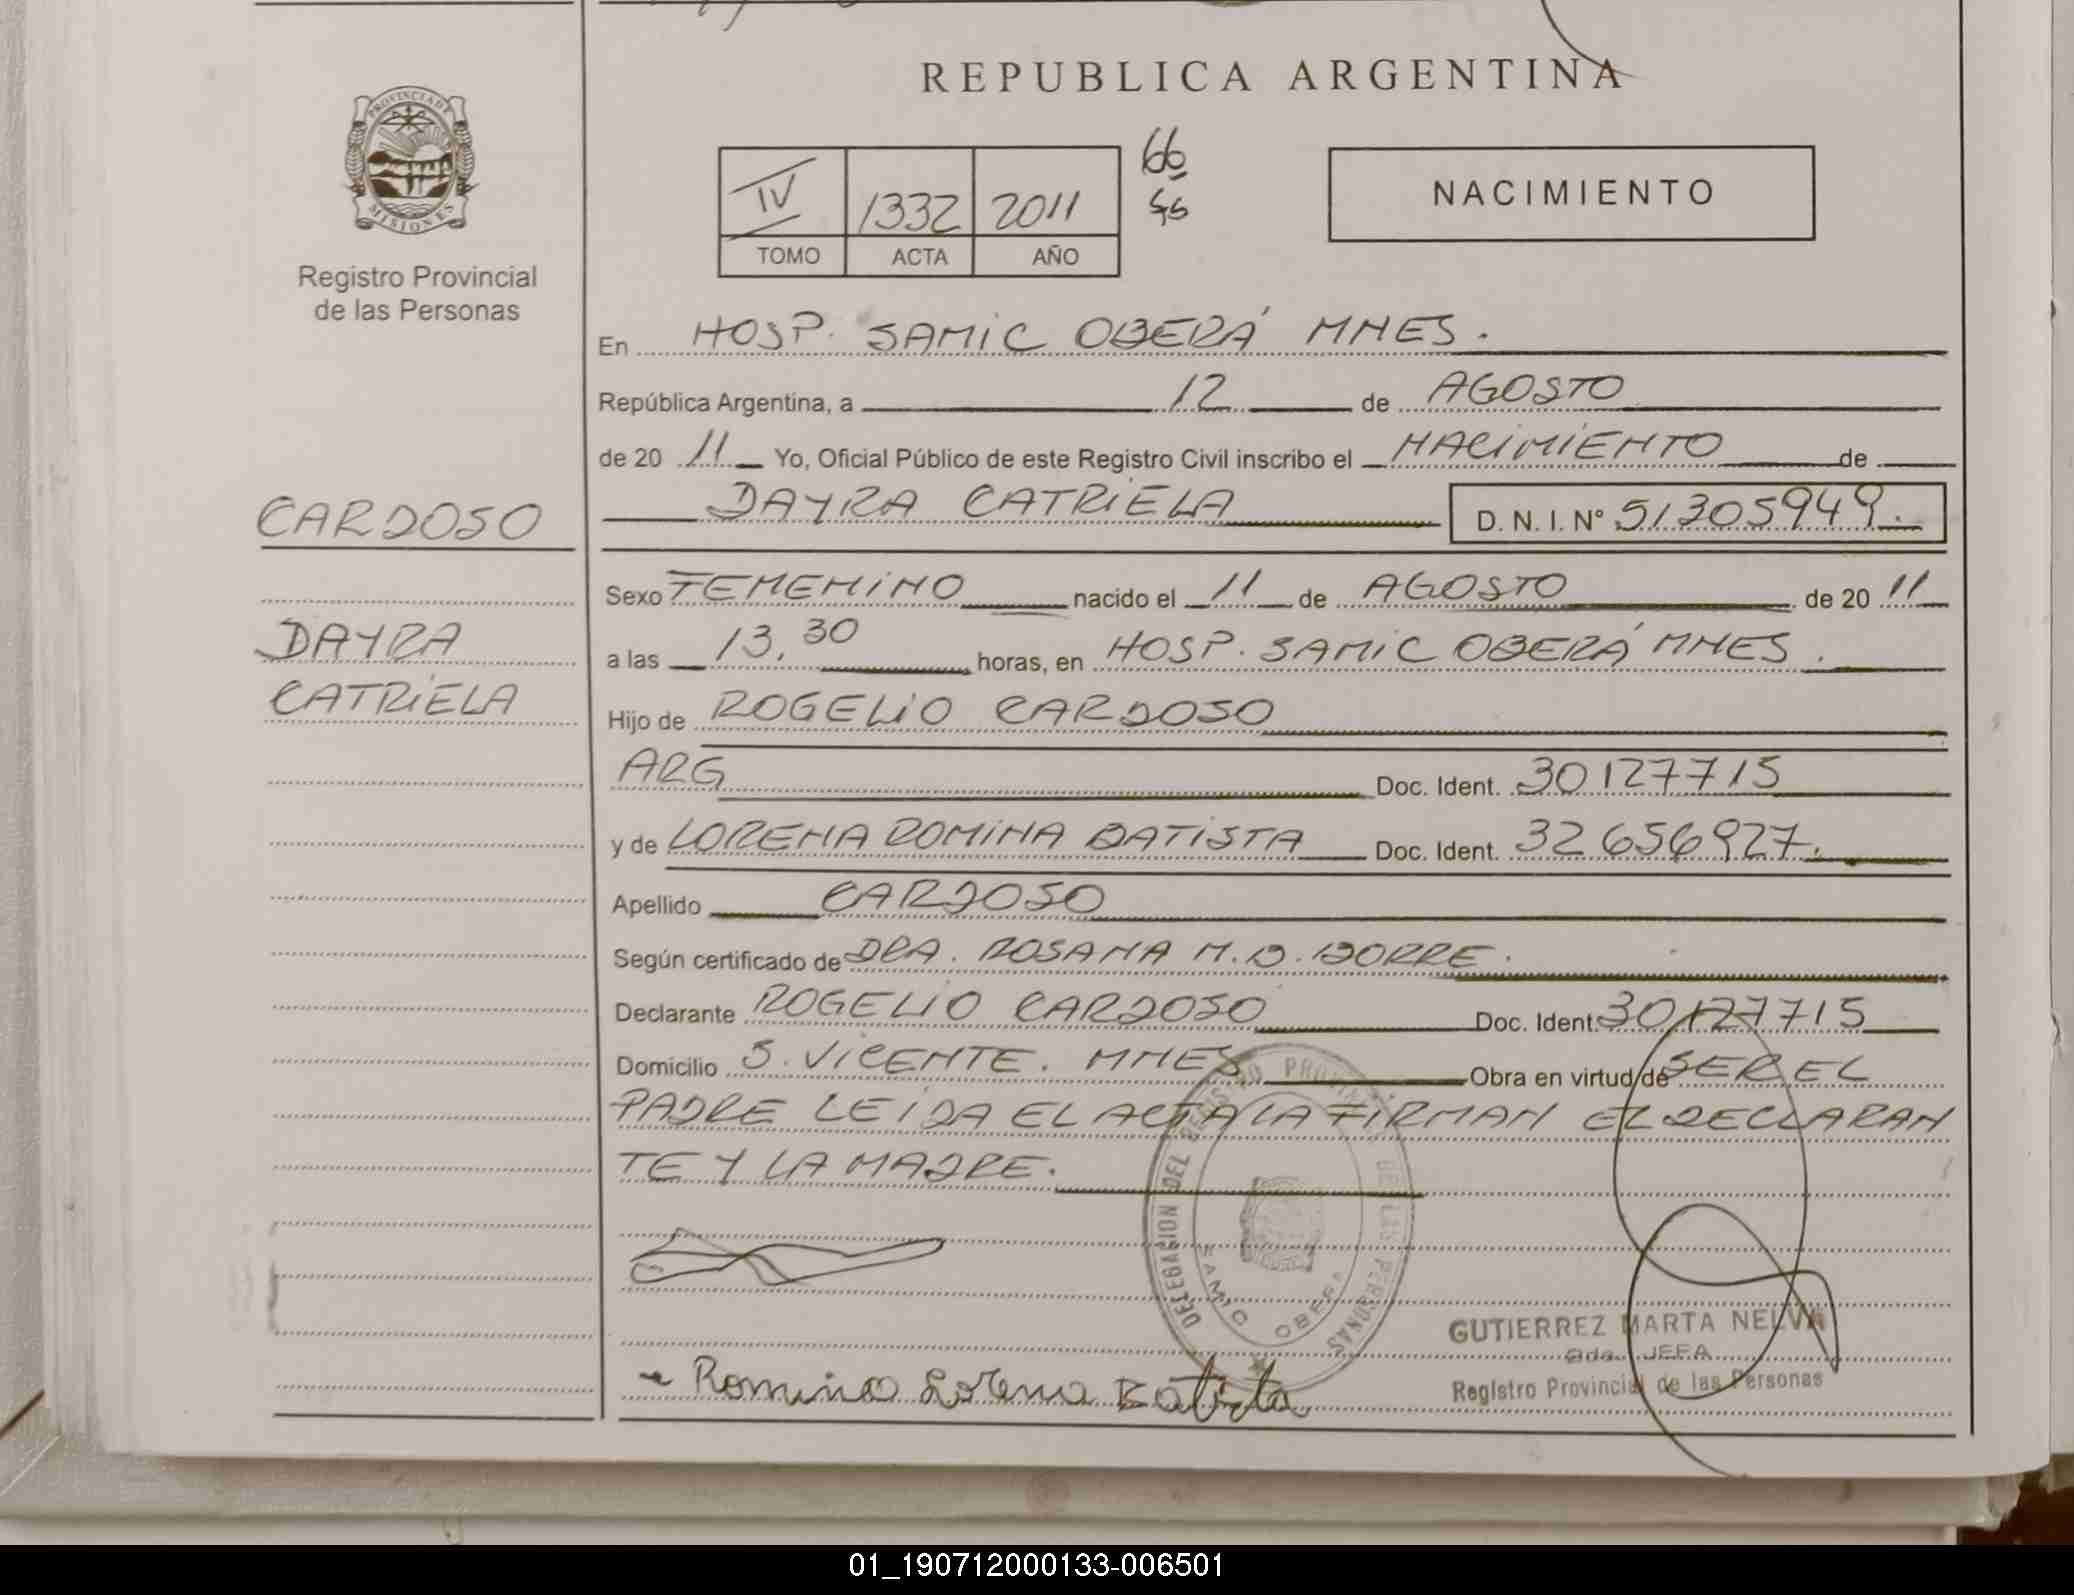 REPUBLICA ARGENTINA
PROVINCIA DE
MISIONES
Registro Provincial
de las Personas
IV 1332 2011
TOMO ACTA AÑO
66
NACIMIENTO
En HOSP. SAMIC OBERÁ MNES.
República Argentina, a 12 de AGOSTO
de 20 11 Yo, Oficial Público de este Registro Civil inscribo el NACIMIENTO de
DAYRA CATRIELA D. N. I. Nº 51305949.
CARDOSO
DAYRA
CATRIELA
Sexo FEMENINO nacido el 11 de AGOSTO de 20 11
a las 13,30 horas, en HOSP. SAMIC OBERÁ MNES.
Hijo de ROGELIO CARDOSO
ARG Doc. Ident. 30127715
y de LORENA ROMINA BATISTA Doc. Ident. 32656927.
Apellido CARDOSO
Según certificado de DRA. ROSANA M.B. BORRE.
Declarante ROGELIO CARDOSO Doc. Ident. 30127715
Domicilio S. VICENTE. MNES Obra en virtud de SER EL
PADRE LEIDA EL ACTA LA FIRMAN EL DECLARAN
TE Y LA MADRE.
DELEGACION DEL REGISTRO PROVINCIAL DE LAS PERSONAS
SAMIC OBERA
GUTIERREZ MARTA NELVA
JEFA
Registro Provincial de las Personas
Romina Lorena Batista
01_190712000133-006501